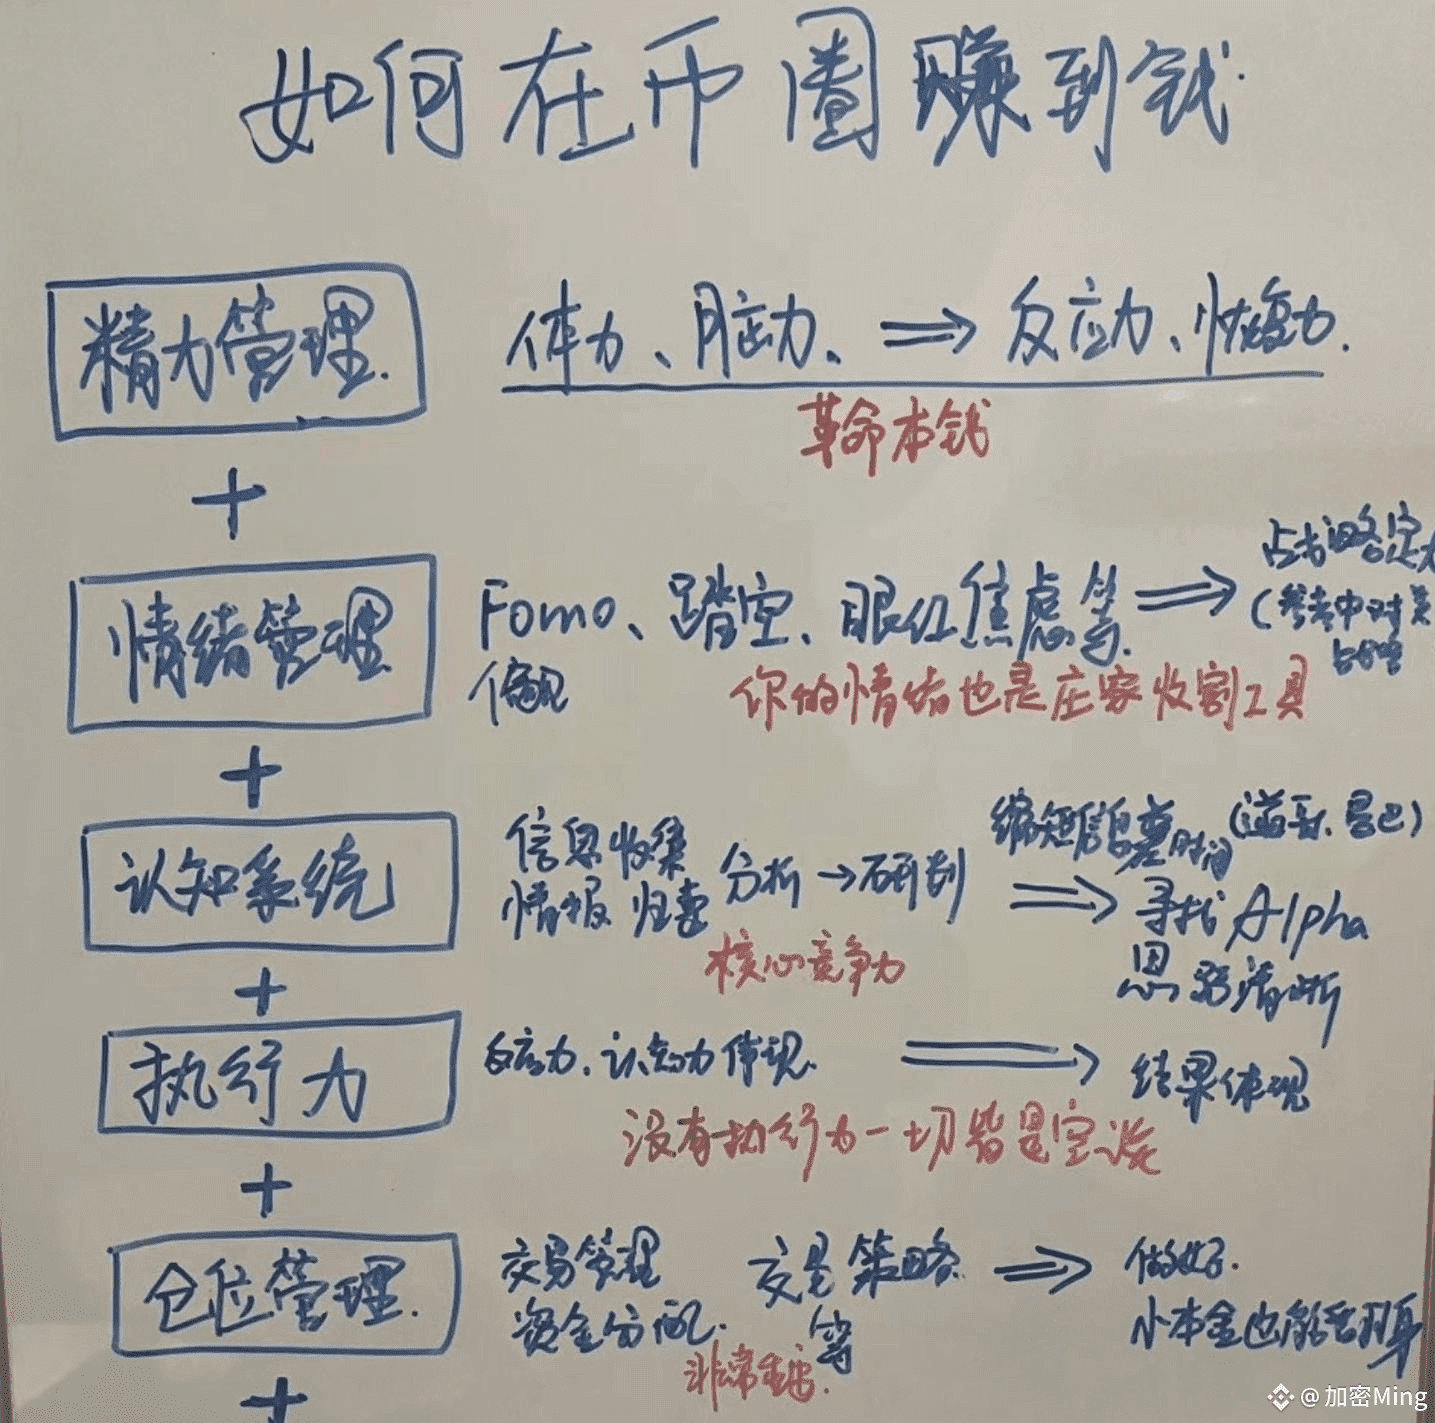 如何在币圈赚到钱.
精力管理.
体力、脑力、⇒ 反应力、恢复力.
革命本钱
+
情绪管理
Fomo、踏空、眼红焦虑等. ⇒
偏见
战略定力
(参考中对美
战略
你的情绪也是庄家收割工具
+
认知系统
信息收集
情报 归类
分析 → 研判 ⇒
缩短信息差时间
寻找 Alpha
思路清晰
核心竞争力
+
执行力
反应力、认知力体现. ⇒ 结果体现
没有执行力一切皆是空谈
+
仓位管理.
交易管理
资金分配.
交易策略
等
⇒ 做好.
小本金也能翻身
非常重要.
+
@加密Ming